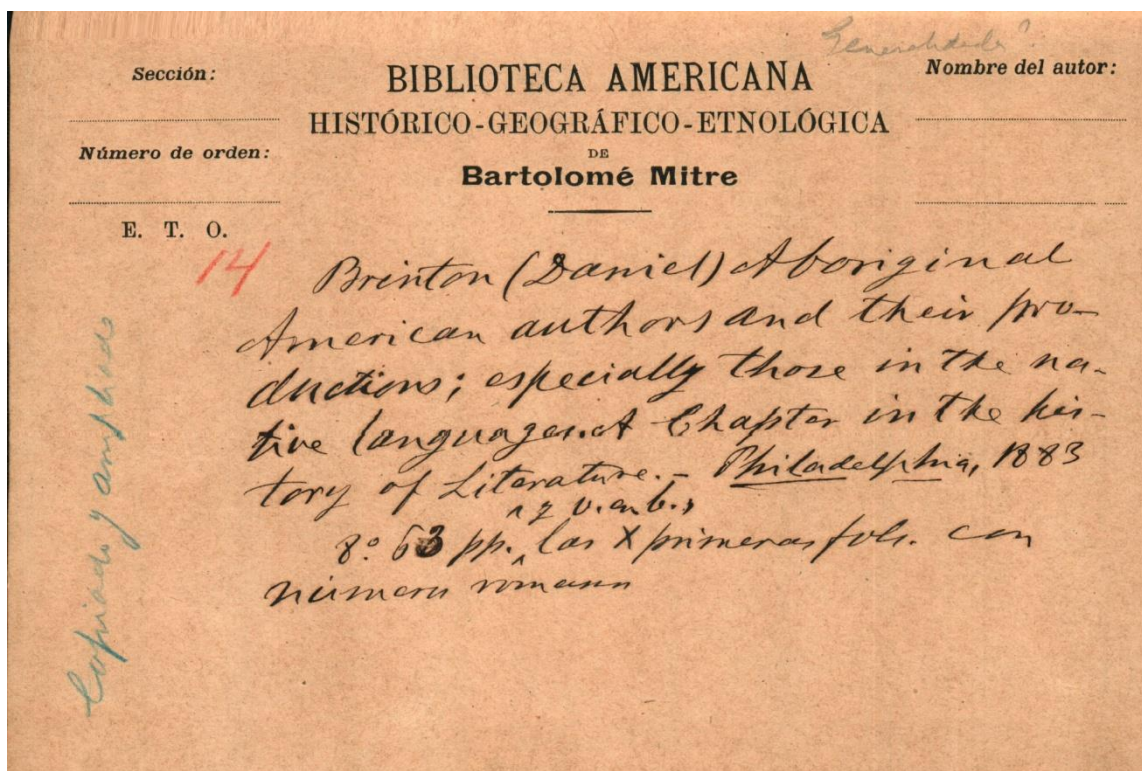 Generalidades
Sección:
BIBLIOTECA AMERICANA
Nombre del autor:
HISTÓRICO-GEOGRÁFICO-ETNOLÓGICA
Número de orden:
DE
Bartolomé Mitre
E. T. O.
14
Brinton (Daniel) Aboriginal
American authors and their pro-
ductions; especially those in the na-
tive languages. A Chapter in the his-
tory of Literature. - Philadelphia, 1883
y v. en b.,
8.º 63 pp. las X primeras fols. con
número romano
Copiado y ampliado